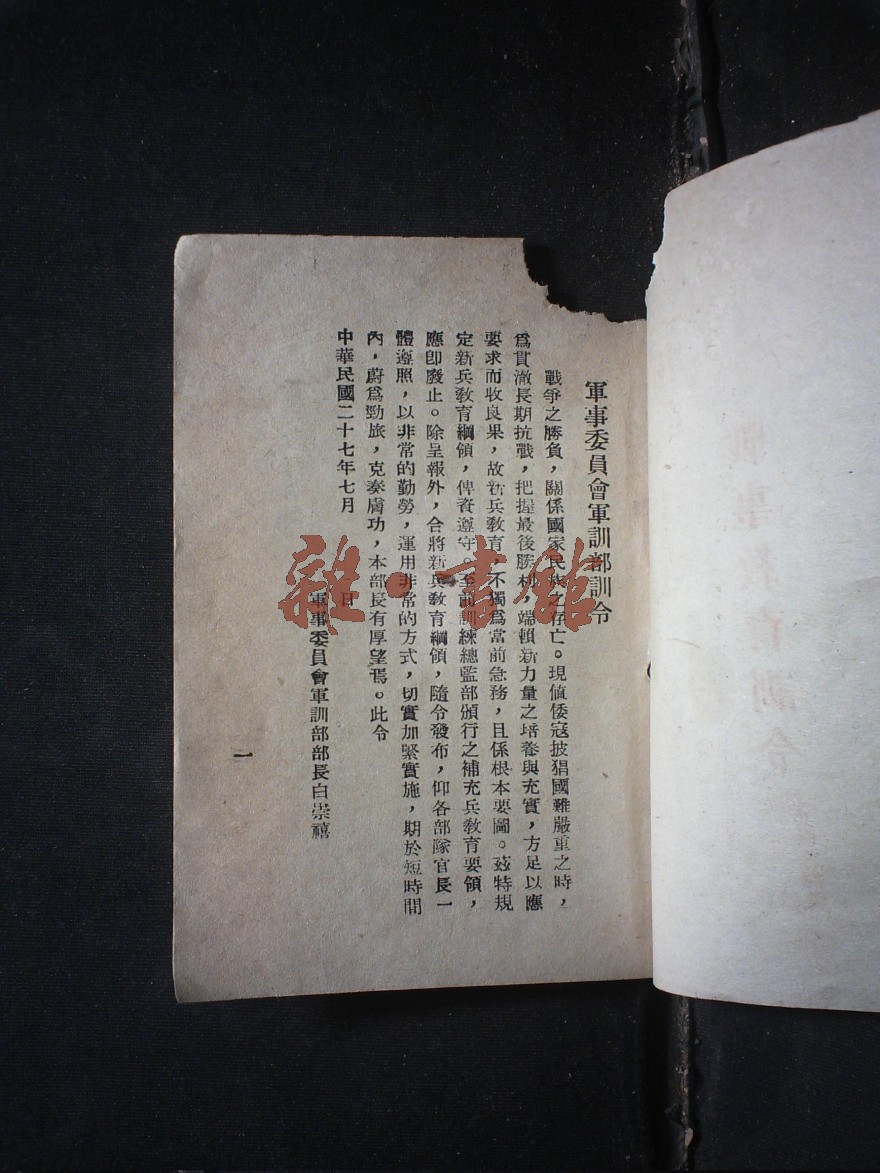 軍事委員會軍訓部訓令
戰爭之勝負，關係國家民族之存亡。現値倭寇披猖國難嚴重之時，
爲貫澈長期抗戰，把握最後勝利，端賴新力量之培養與充實，方足以應
要求而收良果，故新兵敎育，不獨爲當前急務，且係根本要圖。茲特規
定新兵敎育綱領，俾資遵守。至前訓練總監部頒行之補充兵敎育要領，
應卽廢止。除呈報外，合將新兵敎育綱領，隨令發布，仰各部隊官長一
體遵照，以非常的勤勞，運用非常的方式，切實加緊實施，期於短時間
內，蔚爲勁旅，克奏膚功，本部長有厚望焉。此令
軍事委員會軍訓部部長白崇禧
中華民國二十七年七月　　日
一
雜·書館